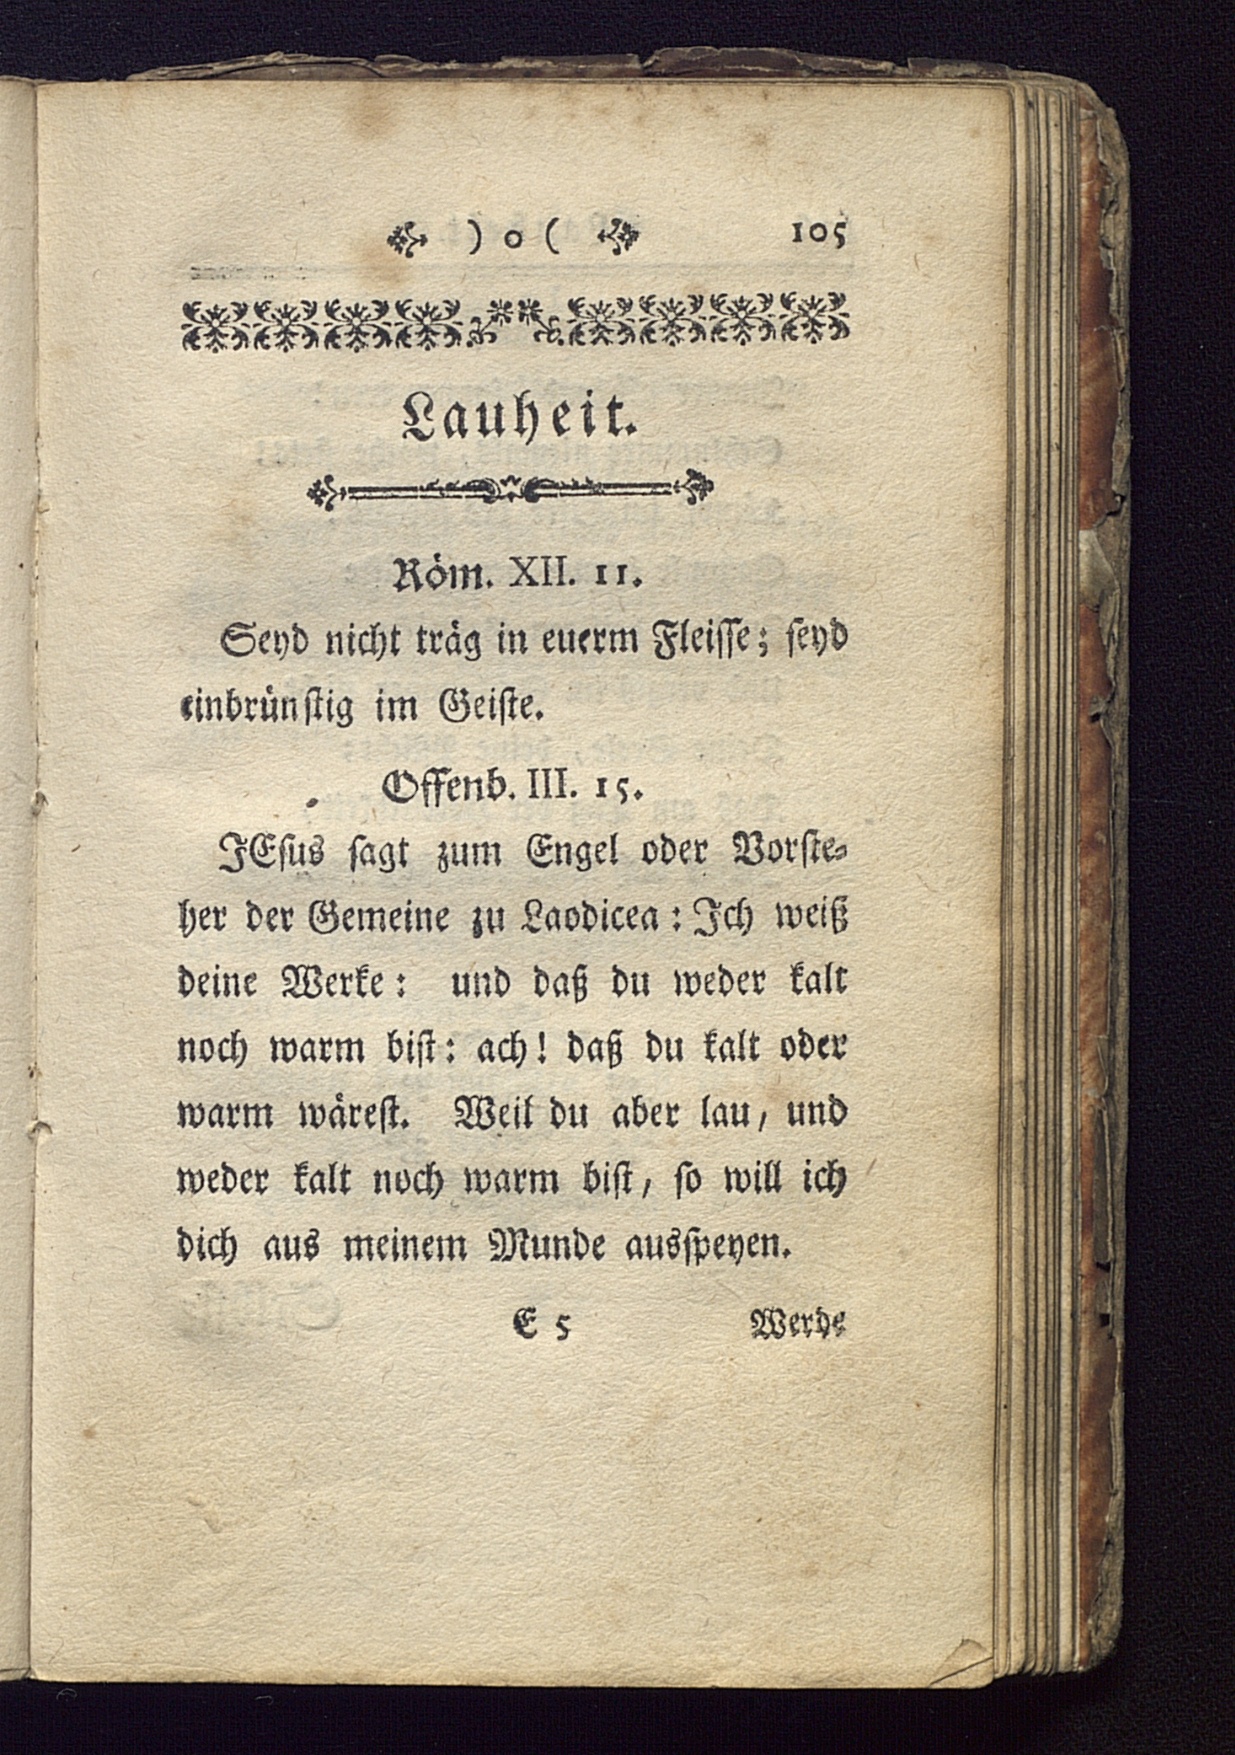 ) o ( 105
Lauheit.
Röm. XII. 11.
Seyd nicht träg in euerm Fleisse; seyd
einbrünstig im Geiste.
Offenb. III. 15.
JEsus sagt zum Engel oder Vorste-
her der Gemeine zu Laodicea: Ich weiß
deine Werke: und daß du weder kalt
noch warm bist: ach! daß du kalt oder
warm wärest. Weil du aber lau, und
weder kalt noch warm bist, so will ich
dich aus meinem Munde ausspeyen.
E 5 Werde